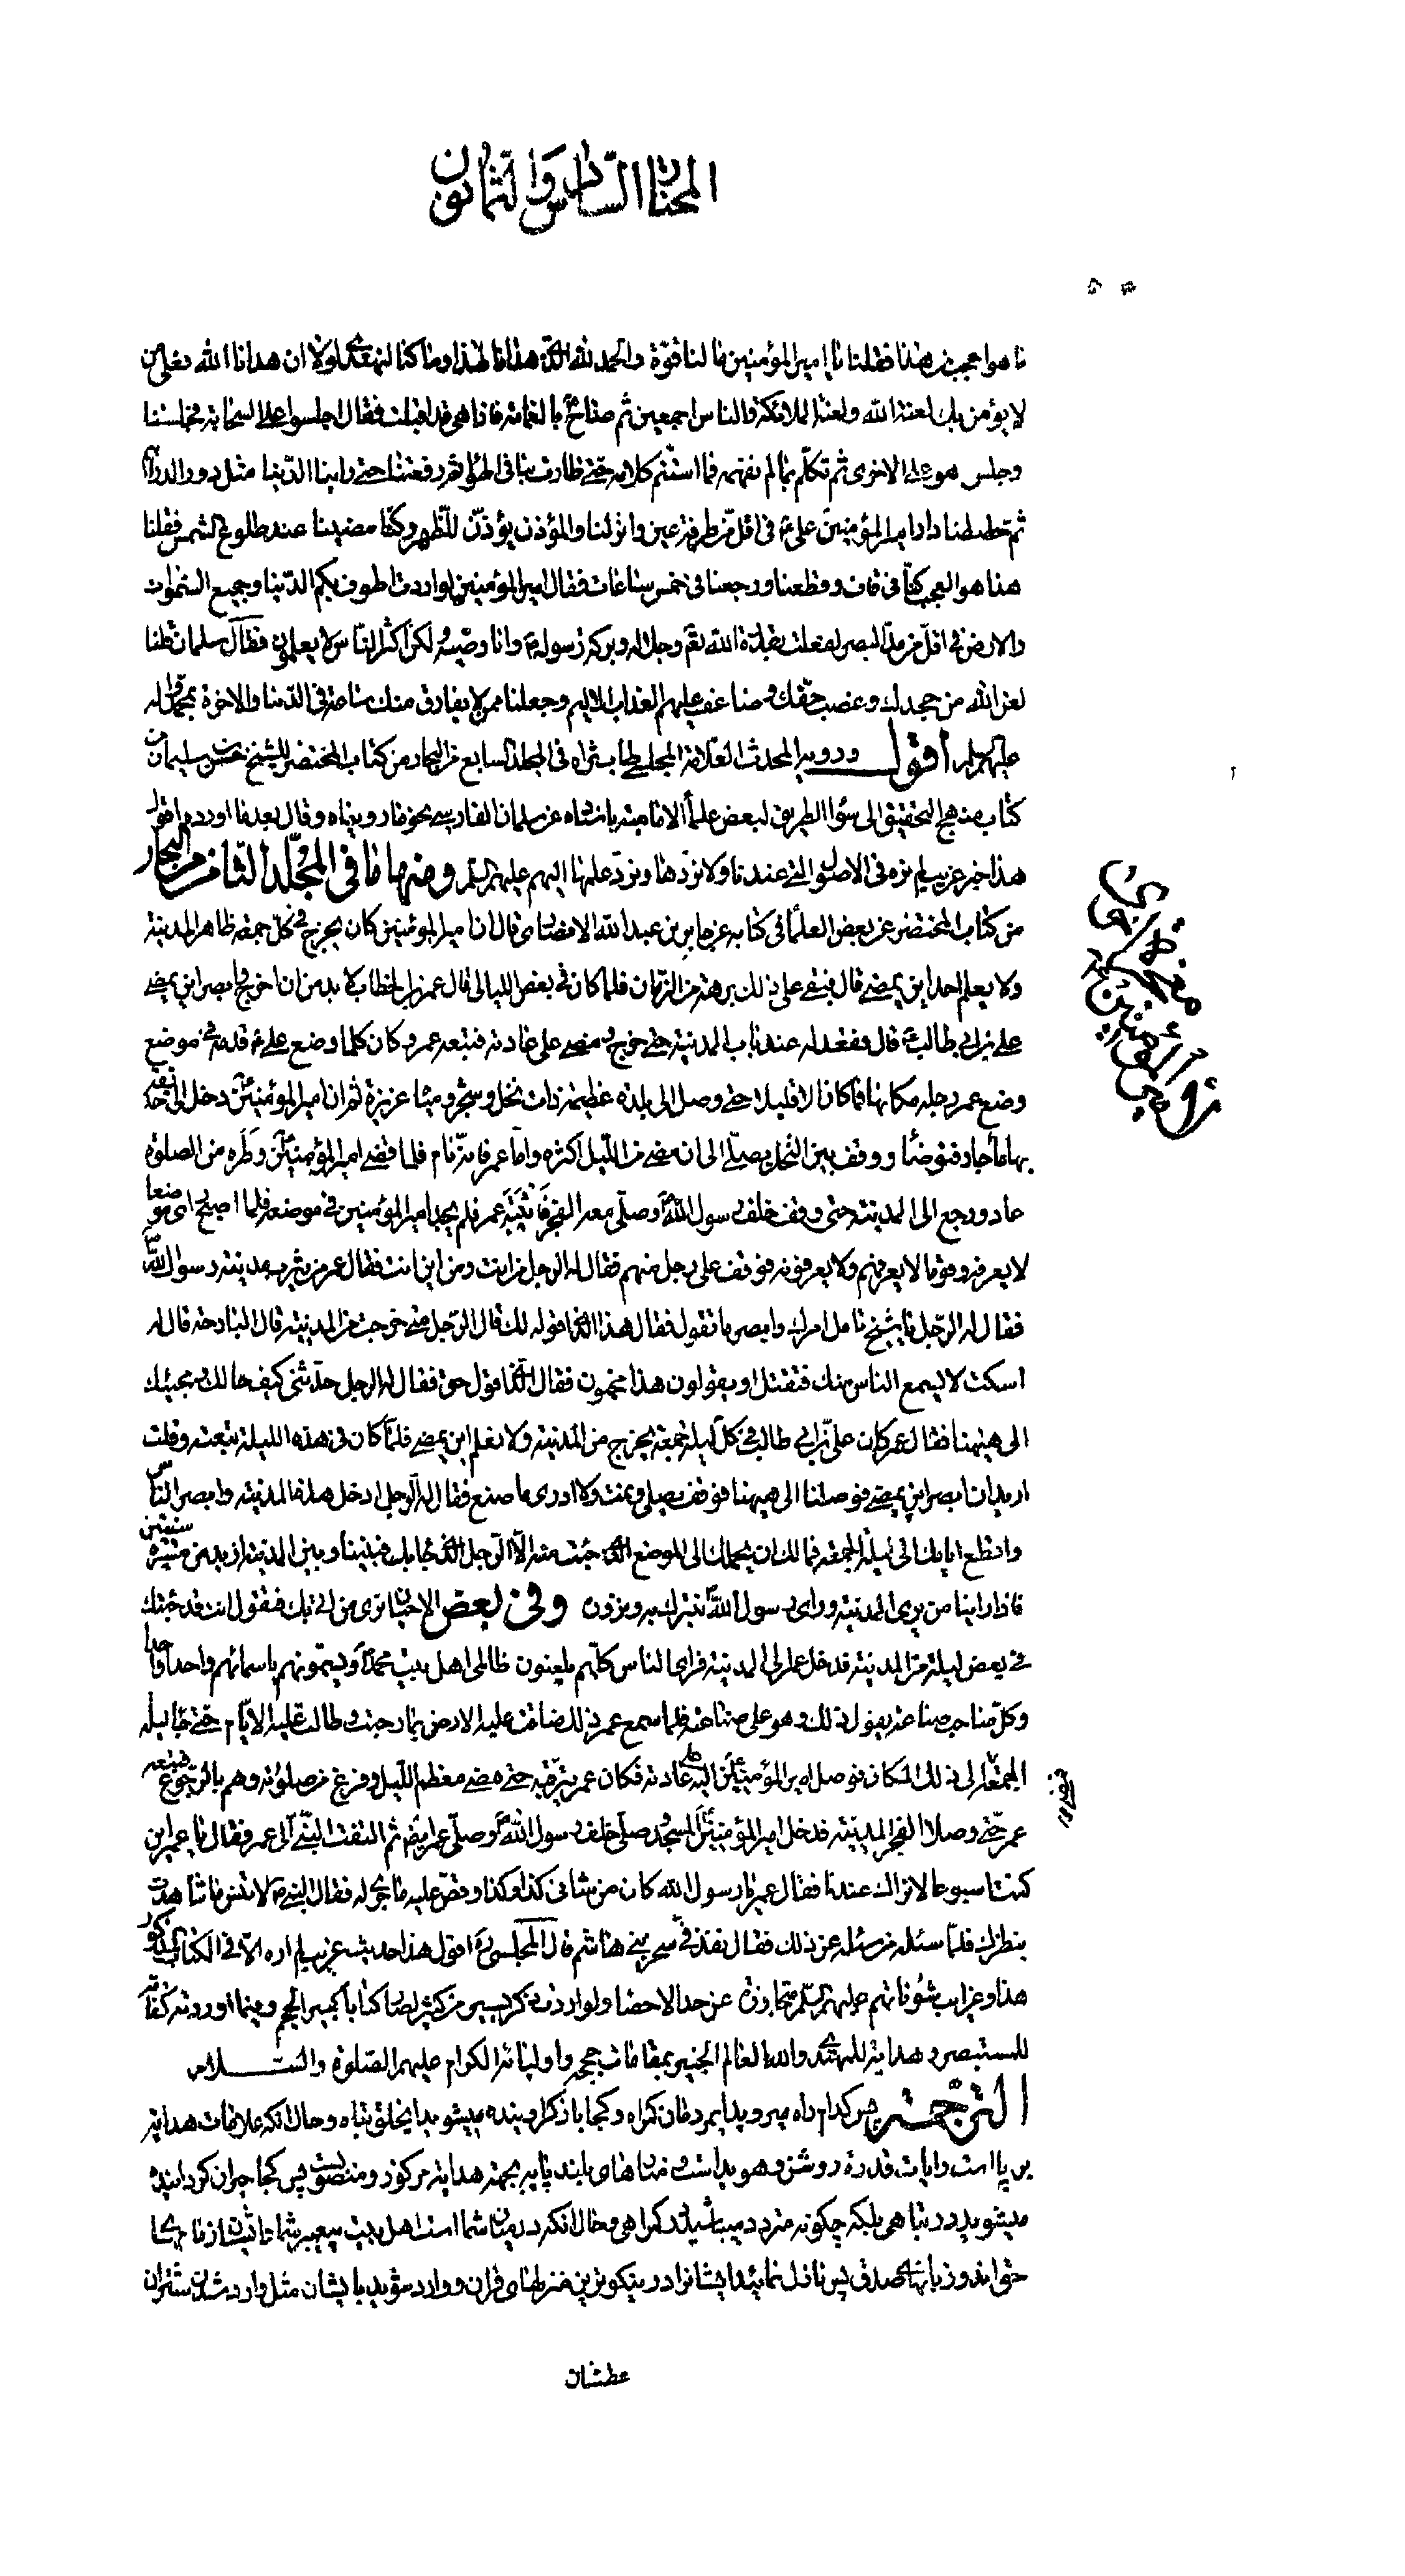 المختار السادس والثمانون
ما هو اعجب من هذا فقلنا يا امير المؤمنين ما لنا قوّة والحمد لله الذى هدانا لهذا وما كنا لنهتدى لولا ان هدانا الله فعلى من
لا يؤمن بك لعنة الله ولعنة الملائكة والناس اجمعين ثم صاح بالغمامة فاذا هى قد اقبلت فقال اجلسوا على السحابة فجلسنا
وجلس هو على الاخرى ثم تكلّم بما لم نفهمه فما استتم كلامه حتى طارت بنا فى الهواء ثم رفعتنا حتى راينا الدّنيا مثل دور الدرهم
ثم حططنا دار امير المؤمنين علىّ ع فى اقلّ من طرفة عين وانزلنا والمؤذن يؤذّن للظهر وكنّا مضينا عند طلوع الشمس فقلنا
هذا هو العجب كنّا فى قاف وقطعنا ورجعنا فى خمس ساعات فقال امير المؤمنين لو اردت اطوف بكم الدّنيا وجميع السّموات
والارض فى اقلّ من مدّ البصر لفعلت بقدرة الله تعم وجلاله وبركة رسوله ص وانا وصيّه لكن اكثر النّاس لا يعلمون فقال سلمان قلنا
لعن الله من جحدك وغصب حقّك وضاعف عليهم العذاب الاليم وجعلنا ممن لا يفارق منك ساعة فى الدّنيا والاخرة بمحمّد واله
عليهم السلام اقول ورويه المحدث العلامة المجلسى طاب ثراه فى المجلد السابع من البحار من كتاب المحتضر للشيخ حسن بن سليمان من
كتاب منهج التحقيق الى سواء الطريق لبعض علماء الامامية باسناده عن سلمان الفارسى بنحو ما رويناه وقال بعد ما اورده اقول
هذا خبر غريب لم نره فى الاصول التى عندنا ولا نردّها ونردّ علمها اليهم عليهم السلم ومنها ما فى المجلّد الثامن من البحار
من كتاب المحتضر عن بعض العلماء فى كتابه عن جابر بن عبد الله الانصارى قال ان امير المؤمنين كان يخرج فى كل جمعة ظاهر المدينة
ولا يعلم احدا اين يمضى قال فبقى على ذلك برهة من الزمان فلما كان فى بعض الليالى قال عمر بن الخطاب لا بد من ان اخرج وابصر اين يمضى
على بن ابى طالب ع قال فقعد له عند باب المدينة حتى خرج ومضى على عادته فتبعه عمر وكان كلما وضع على ع قدمه فى موضع
وضع عمر رجله مكانها فما كان الا قليلا حتى وصل الى بلدة عظيمة ذات نخل وشجر ومياه غزيرة ثم ان امير المؤمنين ع دخل الى حديقة
بها ماء جار فتوضأ ووقف بين النخل يصلّى الى ان مضى من اللّيل اكثره واما عمر فانّه نام فلما قضى امير المؤمنين ع وطره من الصلوة
عاد ورجع الى المدينة حتى وقف خلف رسول الله ص وصلّى معه الفجر فانتبه عمر فلم يجد امير المؤمنين فى موضعه فلما اصبح راى موضعا
لا يعرفه وقوما لا يعرفهم ولا يعرفونه فوقف على رجل منهم فقال له الرجل من انت ومن اين انت فقال عمر من يثرب مدينة رسول الله ص
فقال له الرّجل يا شيخ تامل امرك وابصر ما تقول فقال هذا الذى اقوله لك قال الرّجل متى خرجت من المدينة قال البارحة قال له
اسكت لا يسمع الناس منك فتقتل او يقولون هذا مجنون فقال الذى اقول حق فقال له الرجل حدّثنى كيف حالك ومجيئك
الى ههنا فقال عمر كان علىّ بن ابى طالب فى كلّ ليلة جمعة يخرج من المدينة ولا نعلم اين يمضى فلمّا كان فى هذه الليلة تبعته وقلت
اريد ان ابصر اين يمضى فوصلنا الى ههنا فوقف يصلى ونمت ولا ادرى ما صنع فقال له الرّجل ادخل هذه المدينة وابصر الناس
واقطع ايامك الى ليلة الجمعة فما لك من يحملك الى الموضع الذى جئت منه الّا الرّجل الذى جاء بك فبيننا وبين المدينة ازيد من مسيرة سنتين
فاذا راينا من يرى المدينة ورأى رسول الله ص نتبرك به ونزوره وفى بعض الاحيان نرى من اتى بك فنقول انت قد جئتك
فى بعض ليلة من المدينة فدخل عمر الى المدينة فراى الناس كلّهم يلعنون ظالمى اهل بيت محمّد ص ويسمّونهم باسمائهم واحدا واحدا
وكلّ صاحب صناعة يقول ذلك وهو على صناعته فلما سمع عمر ذلك ضاقت عليه الارض بما رحبت وطالت عليه الايّام حتى جاء ليلة
الجمعة فمضى الى ذلك المكان فوصل امير المؤمنين ع اليه على عادته فكان عمر يترقّبه حتى مضى معظم اللّيل وفرغ من صلوته وهم بالرّجوع فتبعه
عمر حتى وصلا الفجر المدينة فدخل امير المؤمنين ع المسجد وصلّى خلف رسول الله ص وصلّى عمر ايضا ثم التفت النبىّ ص الى عمر فقال يا عمر اين
كنت اسبوعا لا نراك عندنا فقال عمر يا رسول الله كان من شانى كذا وكذا وقصّ عليه ما جرى له فقال النبى ص لا تنس ما شاهدت
بنظرك فلمّا سئله من سئله عن ذلك فقال نفذ فىّ سحر بنى هاشم قال المجلسى ره اقول هذا حديث غريب لم اره الّا فى الكتاب المذكور
هذا وغرايب شؤناتهم عليهم السّلم متجاوزة عن حد الاحصا ولو اردت ذكر يسير من كثير لصار كتابا كبير الحجم وفيما اوردته كفاية
للمستبصر وهداية للمهتدى والله العالم الخبير بمقامات حججه واوليائه الكرام عليهم الصّلوة والسّلام
الترجمة پس كدام راه ميرويد ايمردمان گمراه و كجا باز گردانيده ميشويد ايخلق تباه وحال انكه علامات هدايت
بر پا است و ايات قدرة روشن و هويداست و منارهاى بلند پايه بجهة هداية مركوز و منصوبست پس كجا حيران گردانيده
ميشويد در تباهى بلكه چگونه متردد ميباشيد در گمراهى و حال انكه در ميان شما است اهل بيت پيغمبر شما ايشانند ازمهاى
حق اند و زبانهاى صدق پس نازل نمائيد ايشانرا در نيكوترين منزلهاى قران و وارد شويد بايشان مثل وارد شدن شتران
عطشان
معجزة اخرى
لامير المؤمنين ع